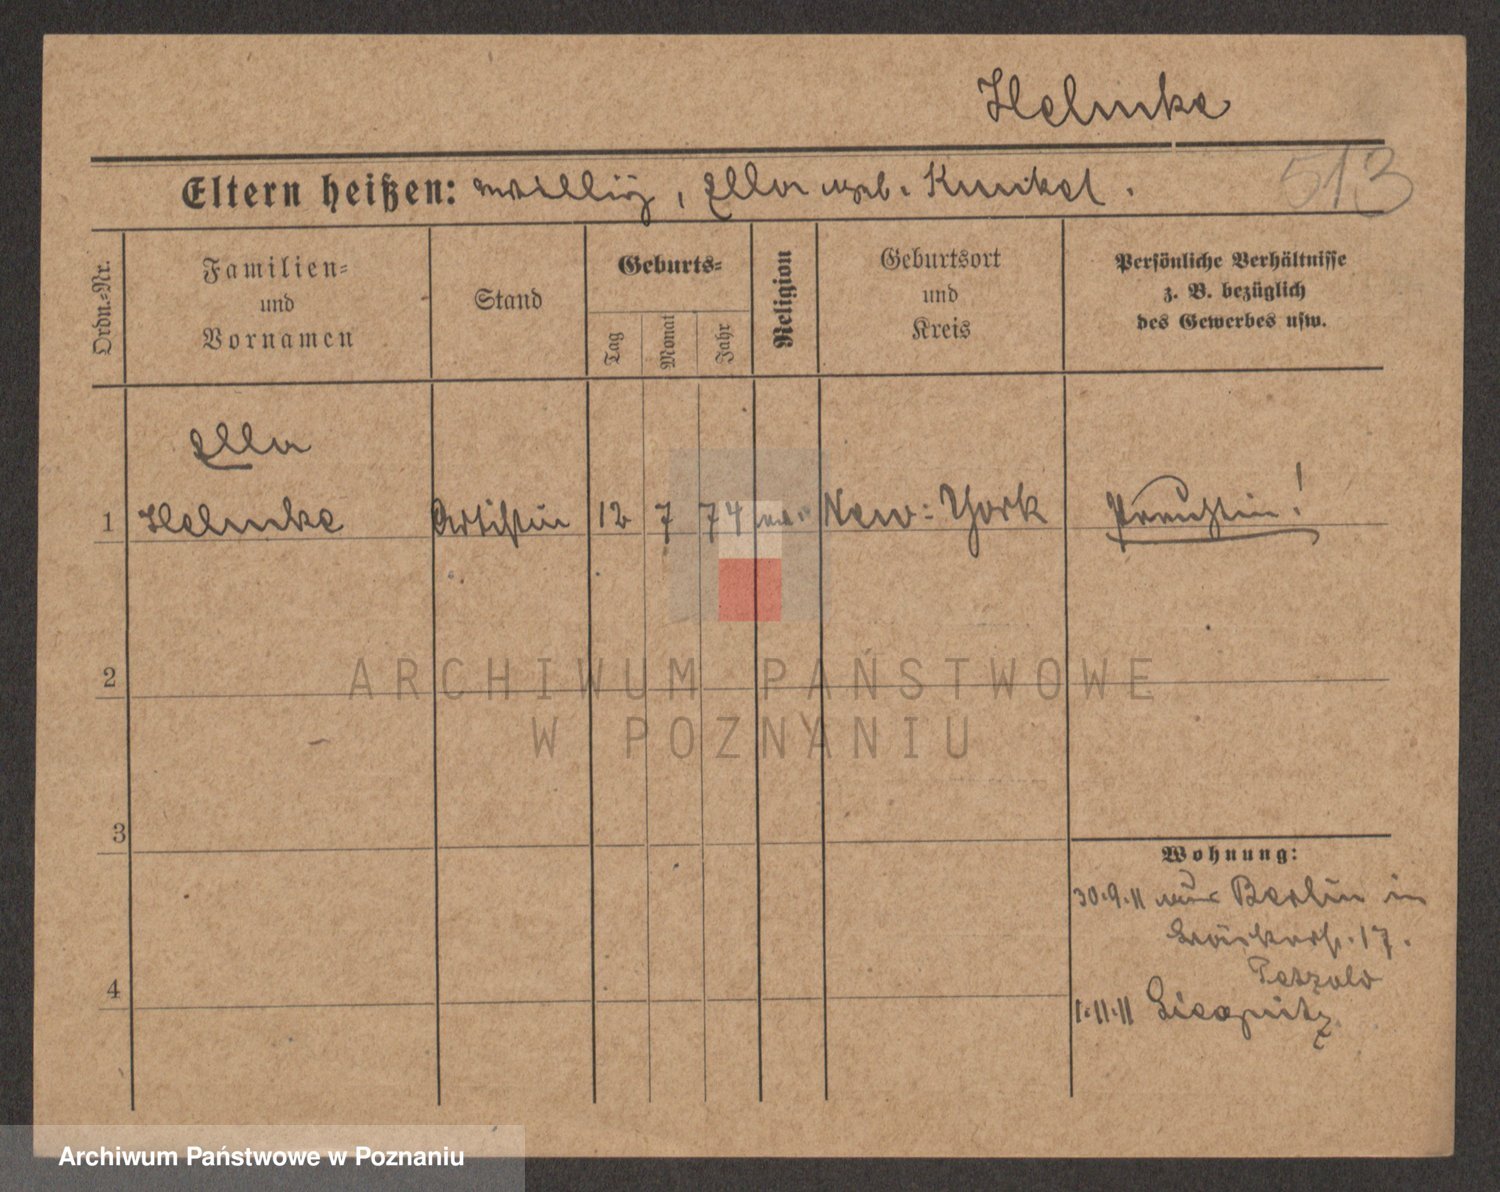 Helmke
513
Eltern heißen: Willy, Ella geb. Kunkel.
Ordn.-Nr.
Familien-
und
Vornamen
Stand
Geburts-
Tag
Monat
Jahr
Religion
Geburtsort
und
Kreis
Persönliche Verhältnisse
z. B. bezüglich
des Gewerbes usw.
Ella
1 Helmke Artistin 12 7 74 New-York Preußin!
2
3
4
Wohnung:
30.9.11 aus Berlin in
17.
Petzold
1.11.11 Liegnitz
ARCHIWUM PAŃSTWOWE
W POZNANIU
Archiwum Państwowe w Poznaniu